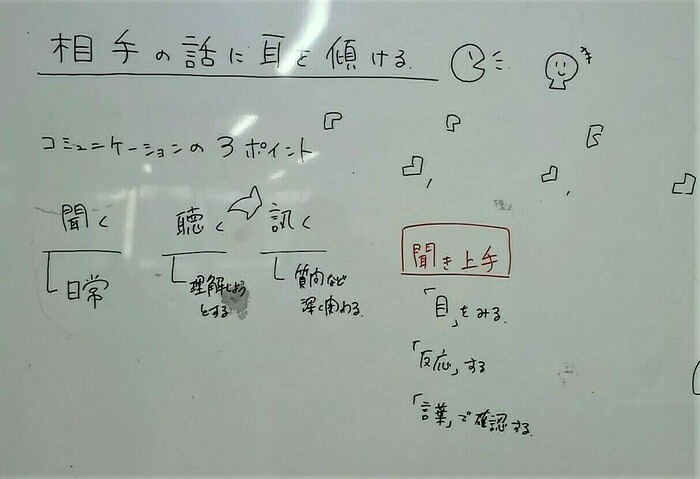 相手の話に耳を傾ける
コミュニケーションの3ポイント
聞く 聴く 訊く
日常
理解しよう
とする
質問など
深く関わる
聞き上手
「目」をみる
「反応」する
「言葉」で確認する